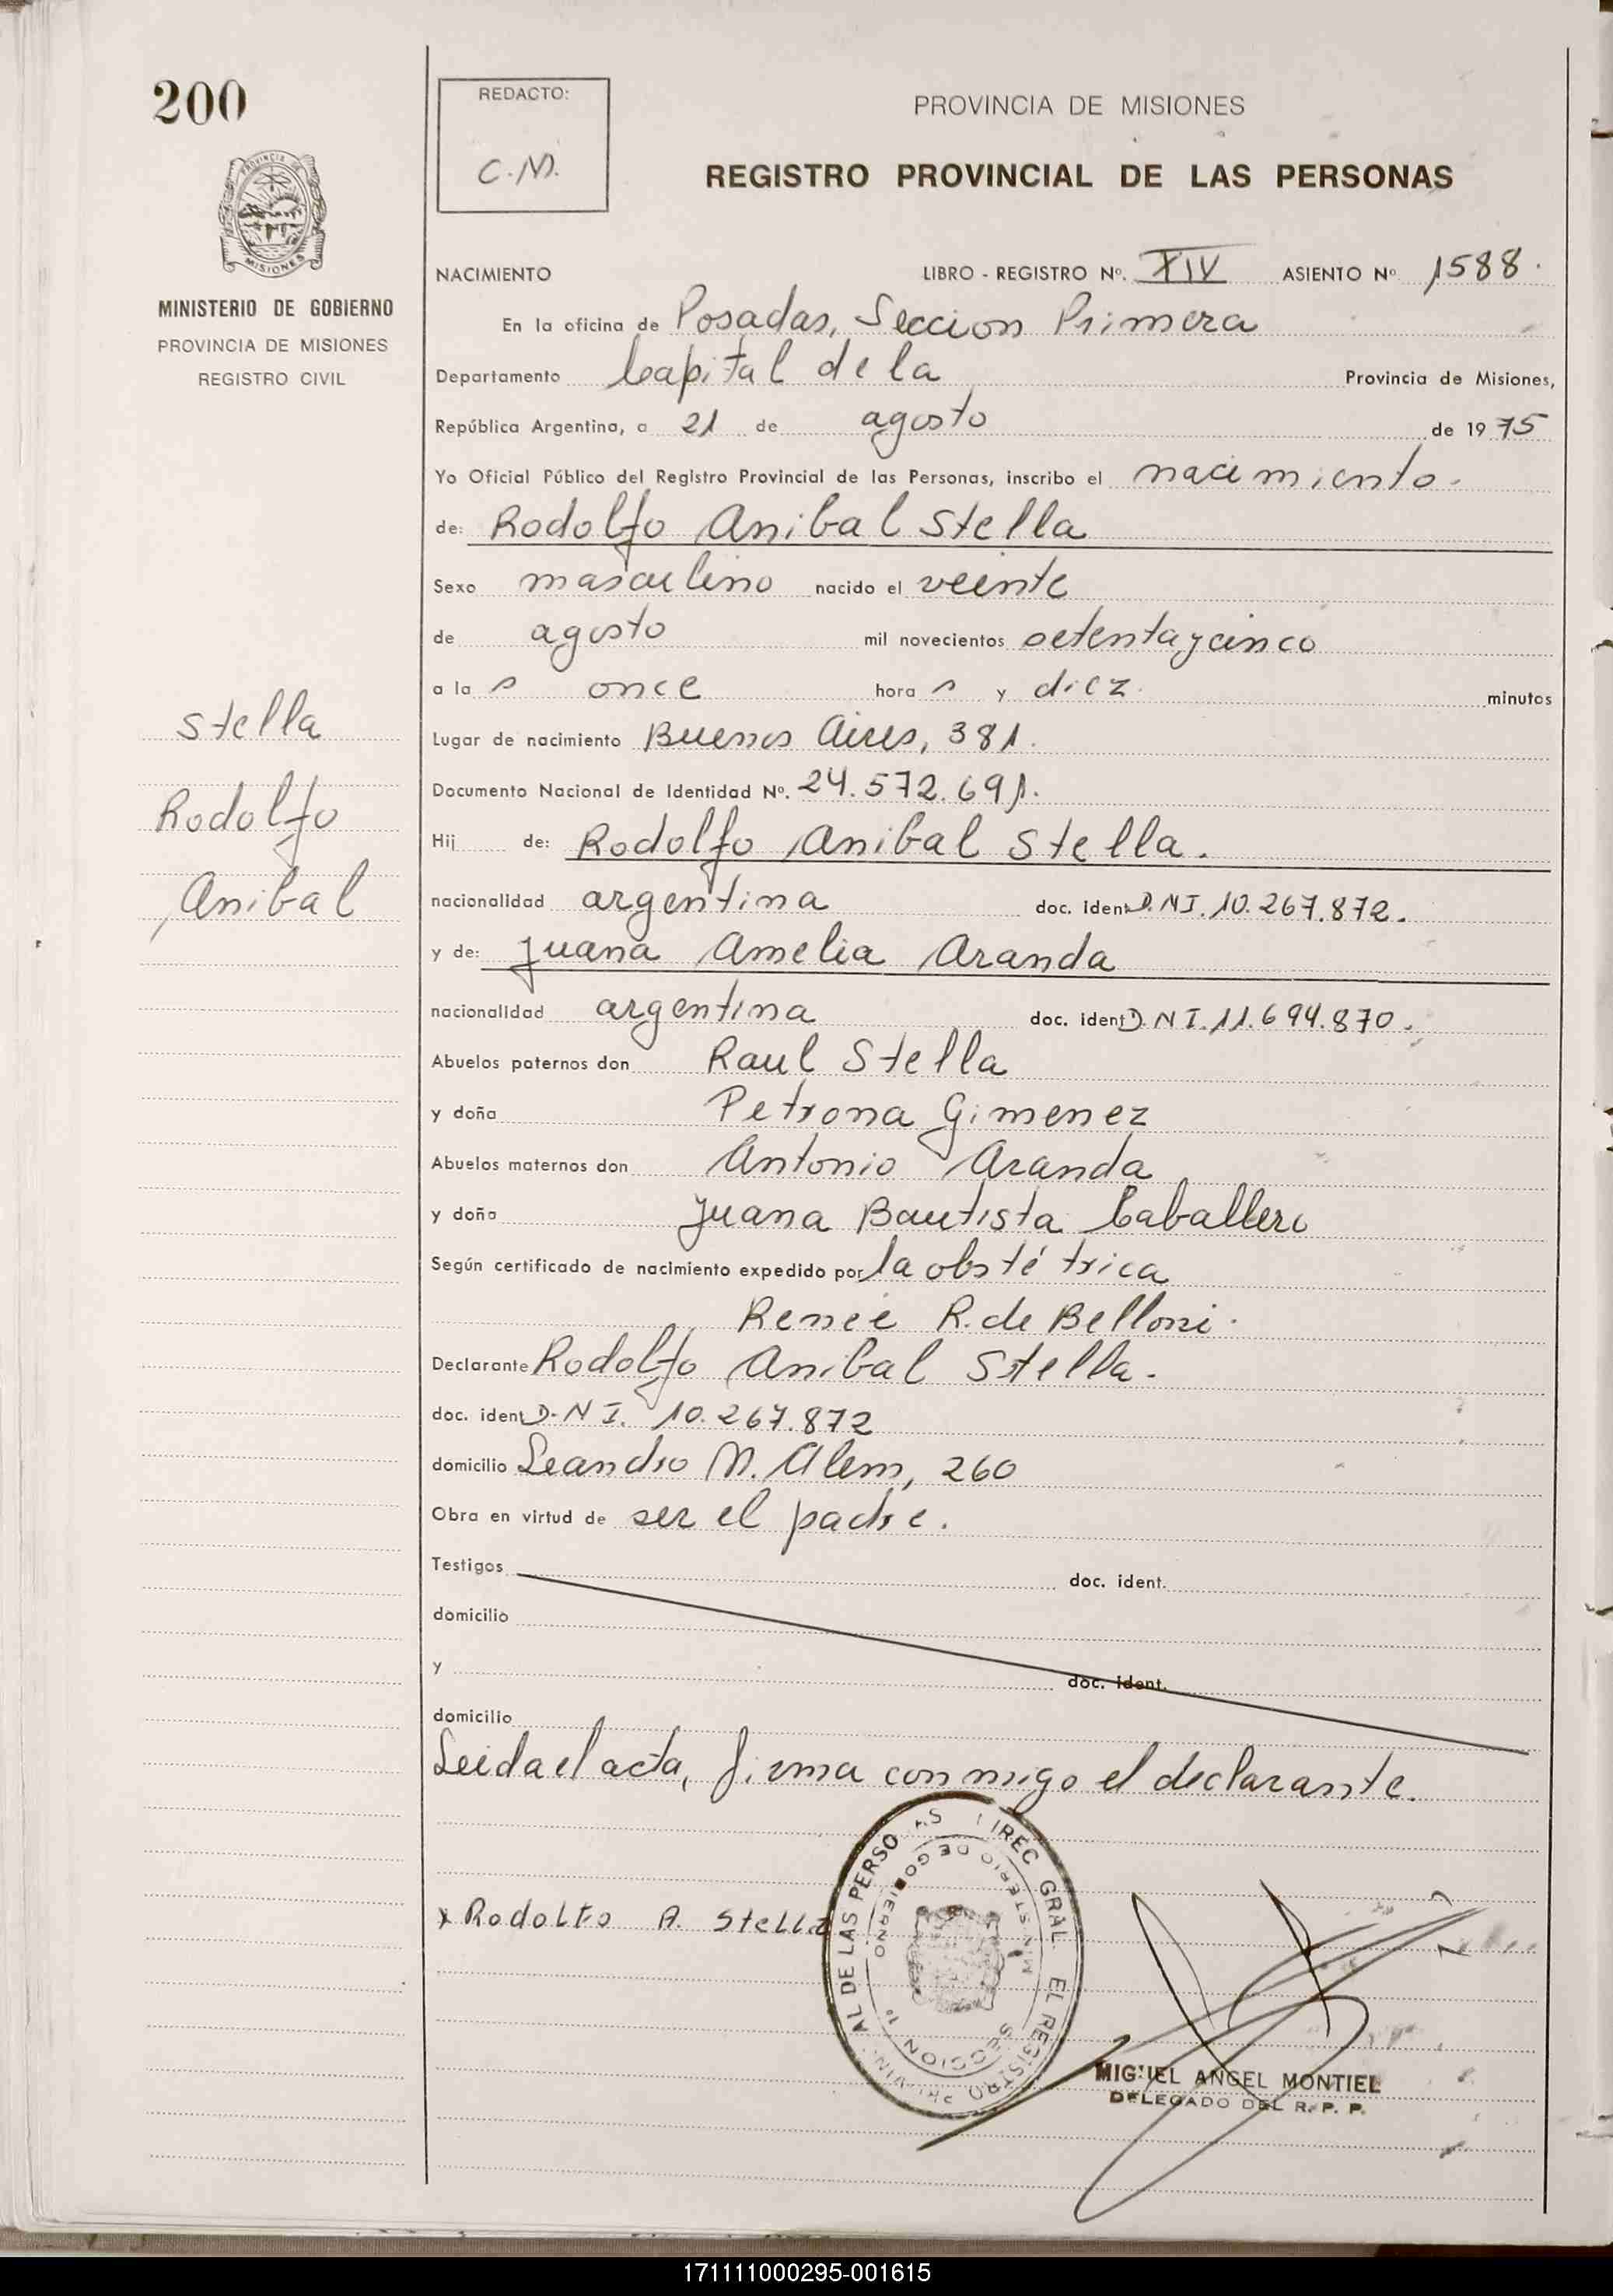 200
REDACTO:
C.M.
PROVINCIA DE MISIONES
REGISTRO PROVINCIAL DE LAS PERSONAS
PROVINCIA DE
MISIONES
MINISTERIO DE GOBIERNO
PROVINCIA DE MISIONES
REGISTRO CIVIL
NACIMIENTO LIBRO - REGISTRO Nº. XIV ASIENTO Nº 1588.
En la oficina de Posadas, Seccion Primera
Departamento Capital de la Provincia de Misiones,
República Argentina, a 21 de agosto de 1975
Yo Oficial Público del Registro Provincial de las Personas, inscribo el nacimiento.
de: Rodolfo Anibal Stella
Sexo masculino nacido el veinte
de agosto mil novecientos setenta y cinco
a la s once hora s y diez. minutos
Lugar de nacimiento Buenos Aires, 381.
Documento Nacional de Identidad Nº. 24.572.691.
Hij de: Rodolfo Anibal Stella.
nacionalidad argentina doc. ident D.N I. 10.267.872.
y de: Juana Amelia Aranda
nacionalidad argentina doc. ident D.N I. 11.694.870.
Abuelos paternos don Raul Stella
y doña Petrona Gimenez
Abuelos maternos don Antonio Aranda
y doña Juana Bautista Caballero
Según certificado de nacimiento expedido por la obstétrica
Renée R. de Belloni.
Declarante Rodolfo Anibal Stella.
doc. ident D.N I. 10.267.872
domicilio Leandro N. Alem, 260
Obra en virtud de ser el padre.
Testigos doc. ident.
domicilio
y doc. ident.
domicilio
Leida el acta, firma conmigo el declarante.
Stella
Rodolfo
Anibal
x Rodolfo A. Stella
MINISTERIO DE GOBIERNO
SECCION 1ª
MIGUEL ANGEL MONTIEL
DELEGADO DEL R. P. P.
171111000295-001615